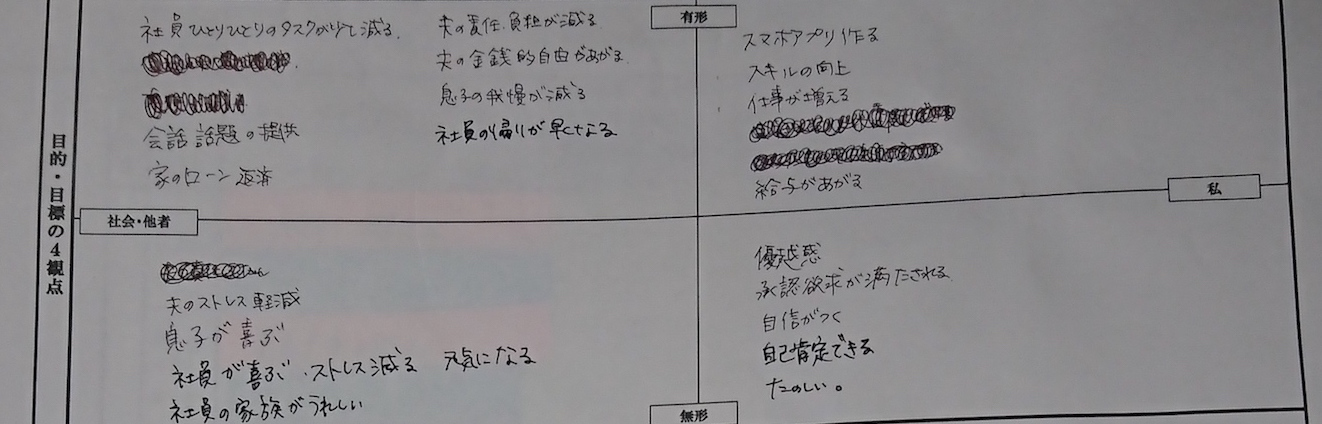 有形
社員ひとりひとりのタスクが少し減る.
会話 話題の提供
家のローン返済
夫の責任.負担が減る
夫の金銭的自由があがる.
息子の我慢が減る
社員の帰りが早くなる
スマホアプリ作る
スキルの向上
仕事が増える
給与があがる
目的・目標の4観点
社会・他者
私
夫のストレス軽減
息子が喜ぶ
社員が喜ぶ.ストレス減る 元気になる
社員の家族がうれしい
優越感
承認欲求が満たされる
自信がつく
自己肯定できる
たのしい。
無形